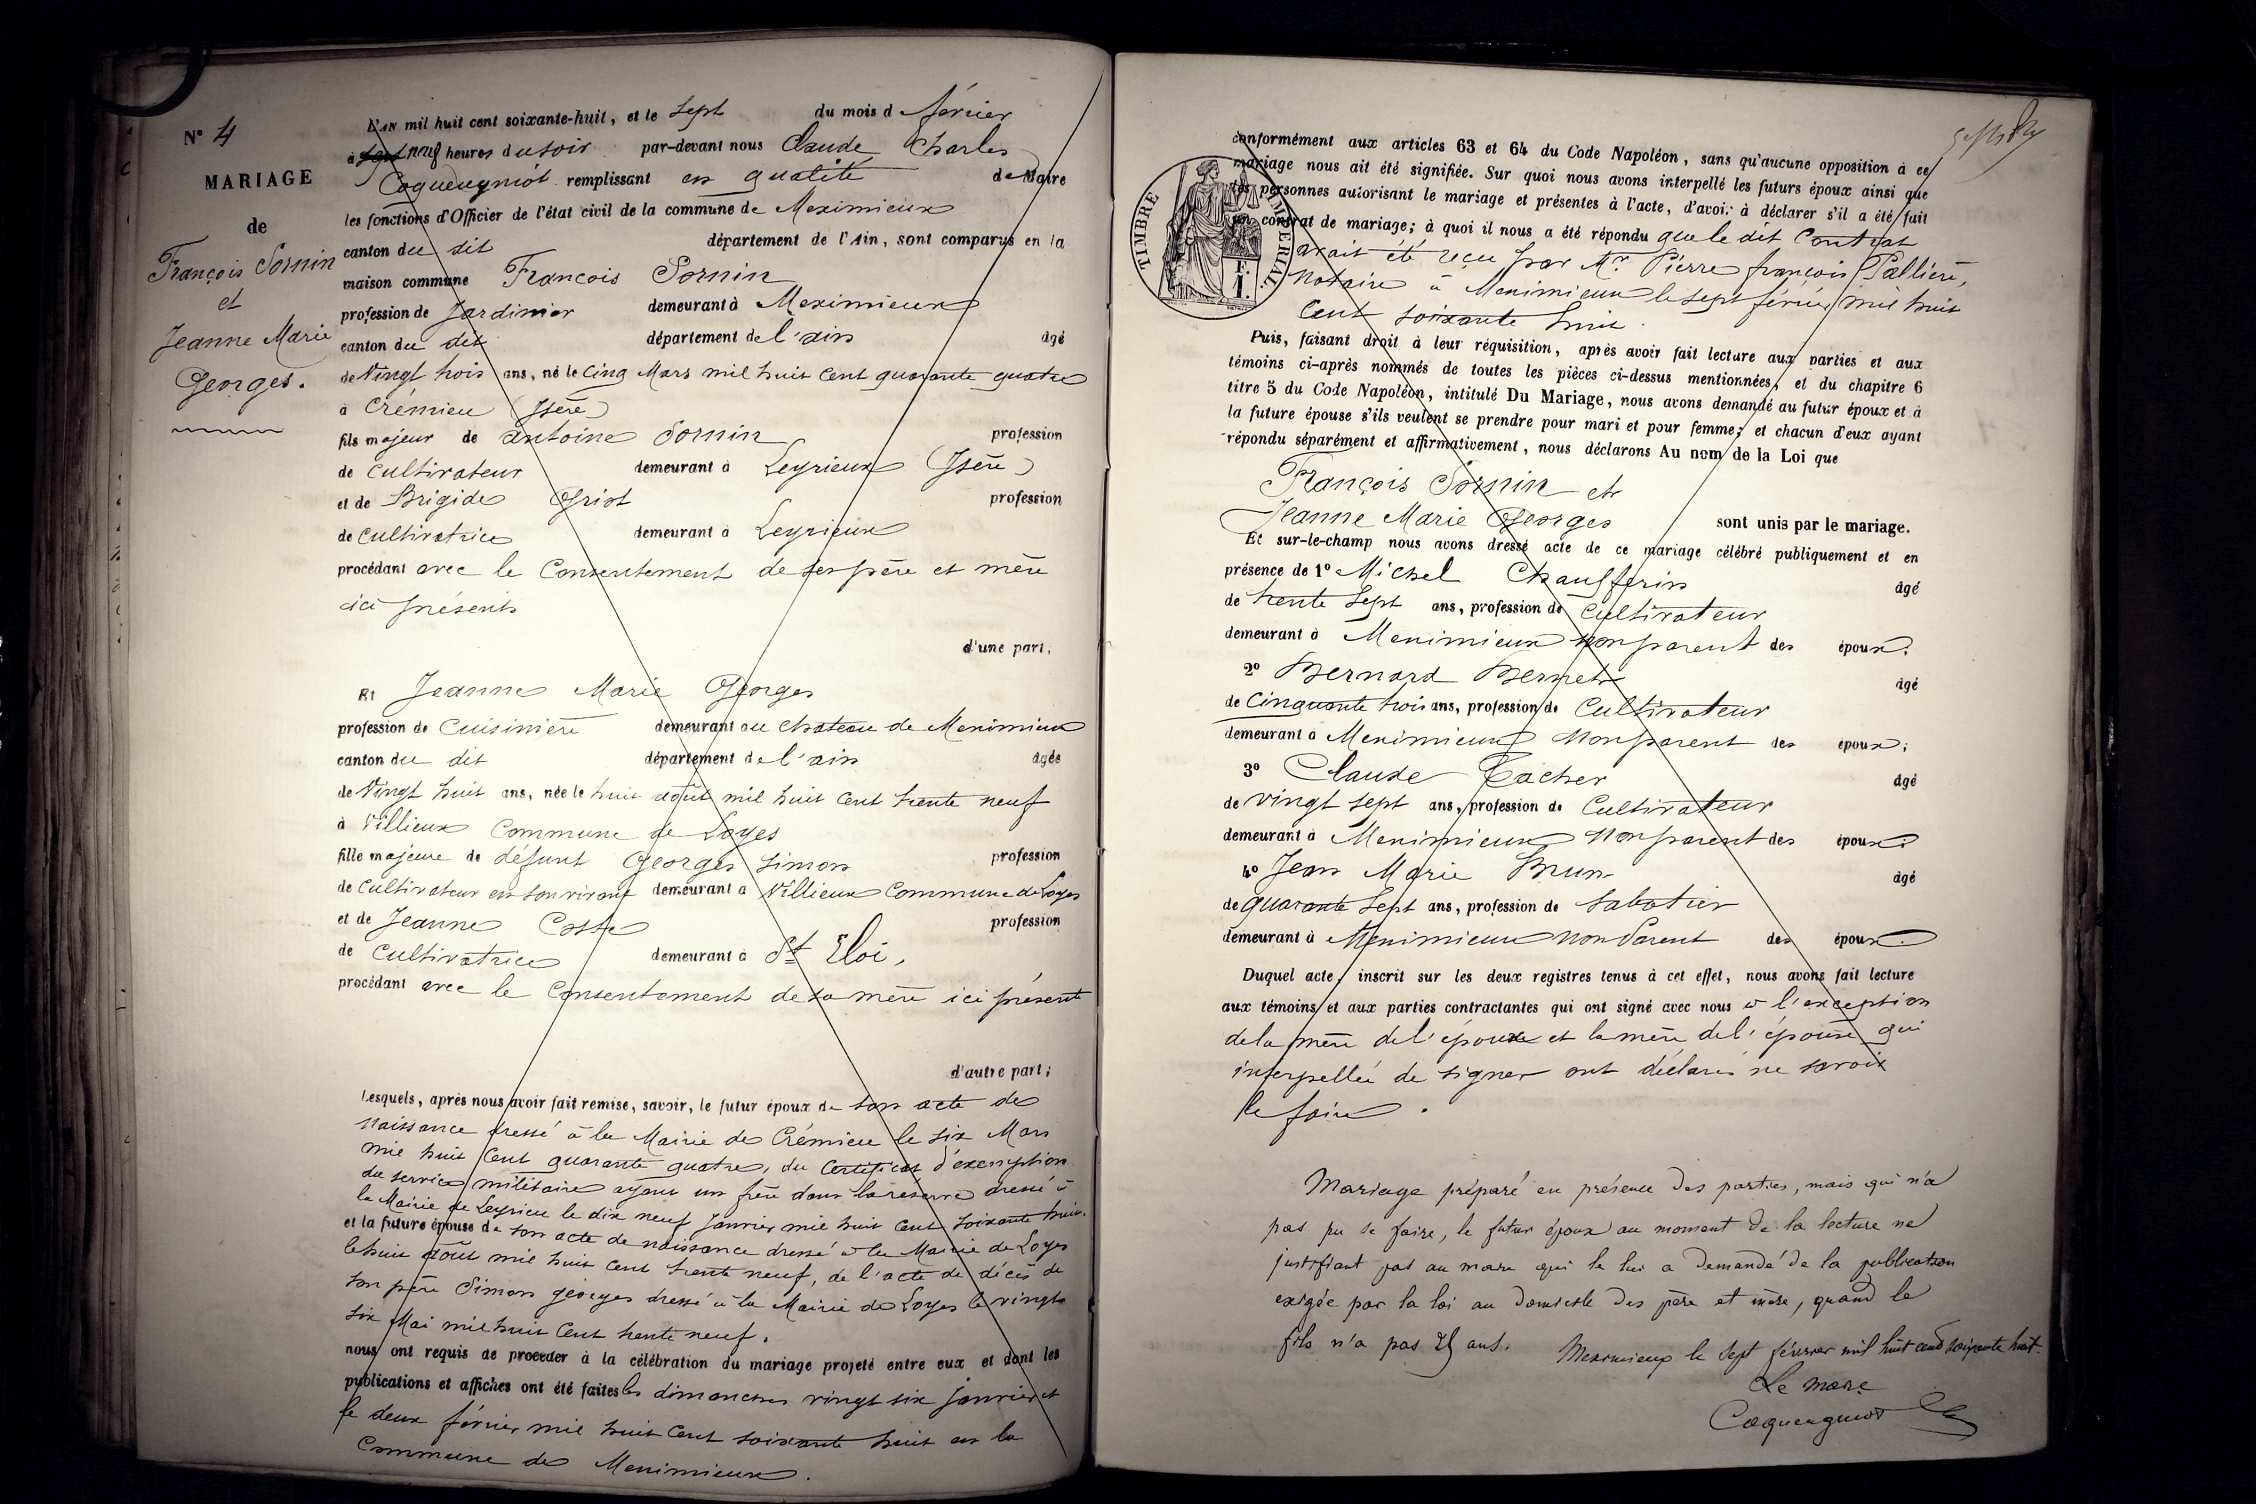 N° 4
MARIAGE
de
François Sornin
et
Jeanne Marie
Georges.
L'AN mil huit cent soixante-huit, et le sept du mois d février
à sept neuf heures du soir par-devant nous Claude Charles
Coqueugniot remplissant en qualité de Maire
les fonctions d'Officier de l'état civil de la commune de Meximieux
canton du dit département de l'Ain, sont comparus en la
maison commune François Sornin
profession de Jardinier demeurant à Meximieux
canton du dit département de l'ain âgé
de Vingt trois ans, né le Cinq Mars mil huit cent quarante quatre
à Crémieu (Isère)
fils majeur de antoine Sornin profession
de cultivateur demeurant à Leyrieux (Isère)
et de Brigide Griot profession
de cultivatrice demeurant à Leyrieux
procédant avec le Consentement de ses père et mère
ici présents
d'une part,
Et Jeanne Marie Georges
profession de Cuisinière demeurant au chateau de Meximieux
canton du dit département de l'ain âgée
de Vingt huit ans, née le huit août mil huit cent trente neuf
à Villieux Commune de Loyes
fille majeure de défunt Georges Simon profession
de Cultivateur en son vivant demeurant à Villieux Commune de Loyes
et de Jeanne Coste profession
de Cultivatrice demeurant à St Eloi,
procédant avec le Consentement de sa mère ici présente
d'autre part;
Lesquels, après nous avoir fait remise, savoir, le futur époux de son acte de
naissance dressé à la Mairie de Crémieu le six Mars
mil huit Cent quarante quatre, du Certificat d'exemption
du service militaire ayant un frère dans la réserve dressé à
la Mairie de Leyrieu le dix neuf Janvier mil huit cent soixante huit.
et la future épouse de son acte de naissance dressé à la Mairie de Loyes
le huit août mil huit cent trente neuf, de l'acte de décès de
son père Simon georges dressé à la Mairie de Loyes le vingt
six Mai mil huit Cent trente neuf.
nous ont requis de procéder à la célébration du mariage projeté entre eux et dont les
publications et affiches ont été faites les dimanches vingt six janvier et
le deux février mil huit Cent soixante huit en la
Commune de Meximieux.
conformément aux articles 63 et 64 du Code Napoléon, sans qu'aucune opposition à ce
mariage nous ait été signifiée. Sur quoi nous avons interpellé les futurs époux ainsi que
les personnes autorisant le mariage et présentes à l'acte, d'avoir à déclarer s'il a été fait
un contrat de mariage; à quoi il nous a été répondu que le dit Contrat
avait été reçu par Mr Pierre françois Pallière,
Notaire à Meximieux le sept février mil huit
Cent soixante huit.
TIMBRE IMPERIAL.
E.
1.
Puis, faisant droit à leur réquisition, après avoir fait lecture aux parties et aux
témoins ci-après nommés de toutes les pièces ci-dessus mentionnées, et du chapitre 6
titre 5 du Code Napoléon, intitulé Du Mariage, nous avons demandé au futur époux et à
la future épouse s'ils veulent se prendre pour mari et pour femme; et chacun d'eux ayant
répondu séparément et affirmativement, nous déclarons Au nom de la Loi que
François Sornin et
Jeanne Marie Georges sont unis par le mariage.
Et sur-le-champ nous avons dressé acte de ce mariage célébré publiquement et en
présence de 1° Michel Chaufferin âgé
de trente sept ans, profession de Cultivateur
demeurant à Meximieux non parent des époux.
2° Bernard Bernet âgé
de Cinquante trois ans, profession de Cultivateur
demeurant à Meximieux Non parent des époux;
3° Claude Tacher âgé
de vingt sept ans, profession de Cultivateur
demeurant à Meximieux Non parent des époux.
4° Jean Marie Brun âgé
de quarante sept ans, profession de Sabotier
demeurant à Meximieux non Parent des époux.
Duquel acte, inscrit sur les deux registres tenus à cet effet, nous avons fait lecture
aux témoins et aux parties contractantes qui ont signé avec nous à l'exception
de la mère de l'époux et la mère de l'épouse qui
interpellée de signer ont déclaré ne savoir
le faire.
Mariage préparé en présence des parties, mais qui n'a
pas pu se faire, le futur époux au moment de la lecture ne
justifiant pas au maire qui le lui a demandé de la publication
exigée par la loi au domicile des père et mère, quand le
fils n'a pas 25 ans. Meximieux le sept février mil huit cent soixante huit.
Le maire
Coqueugniot